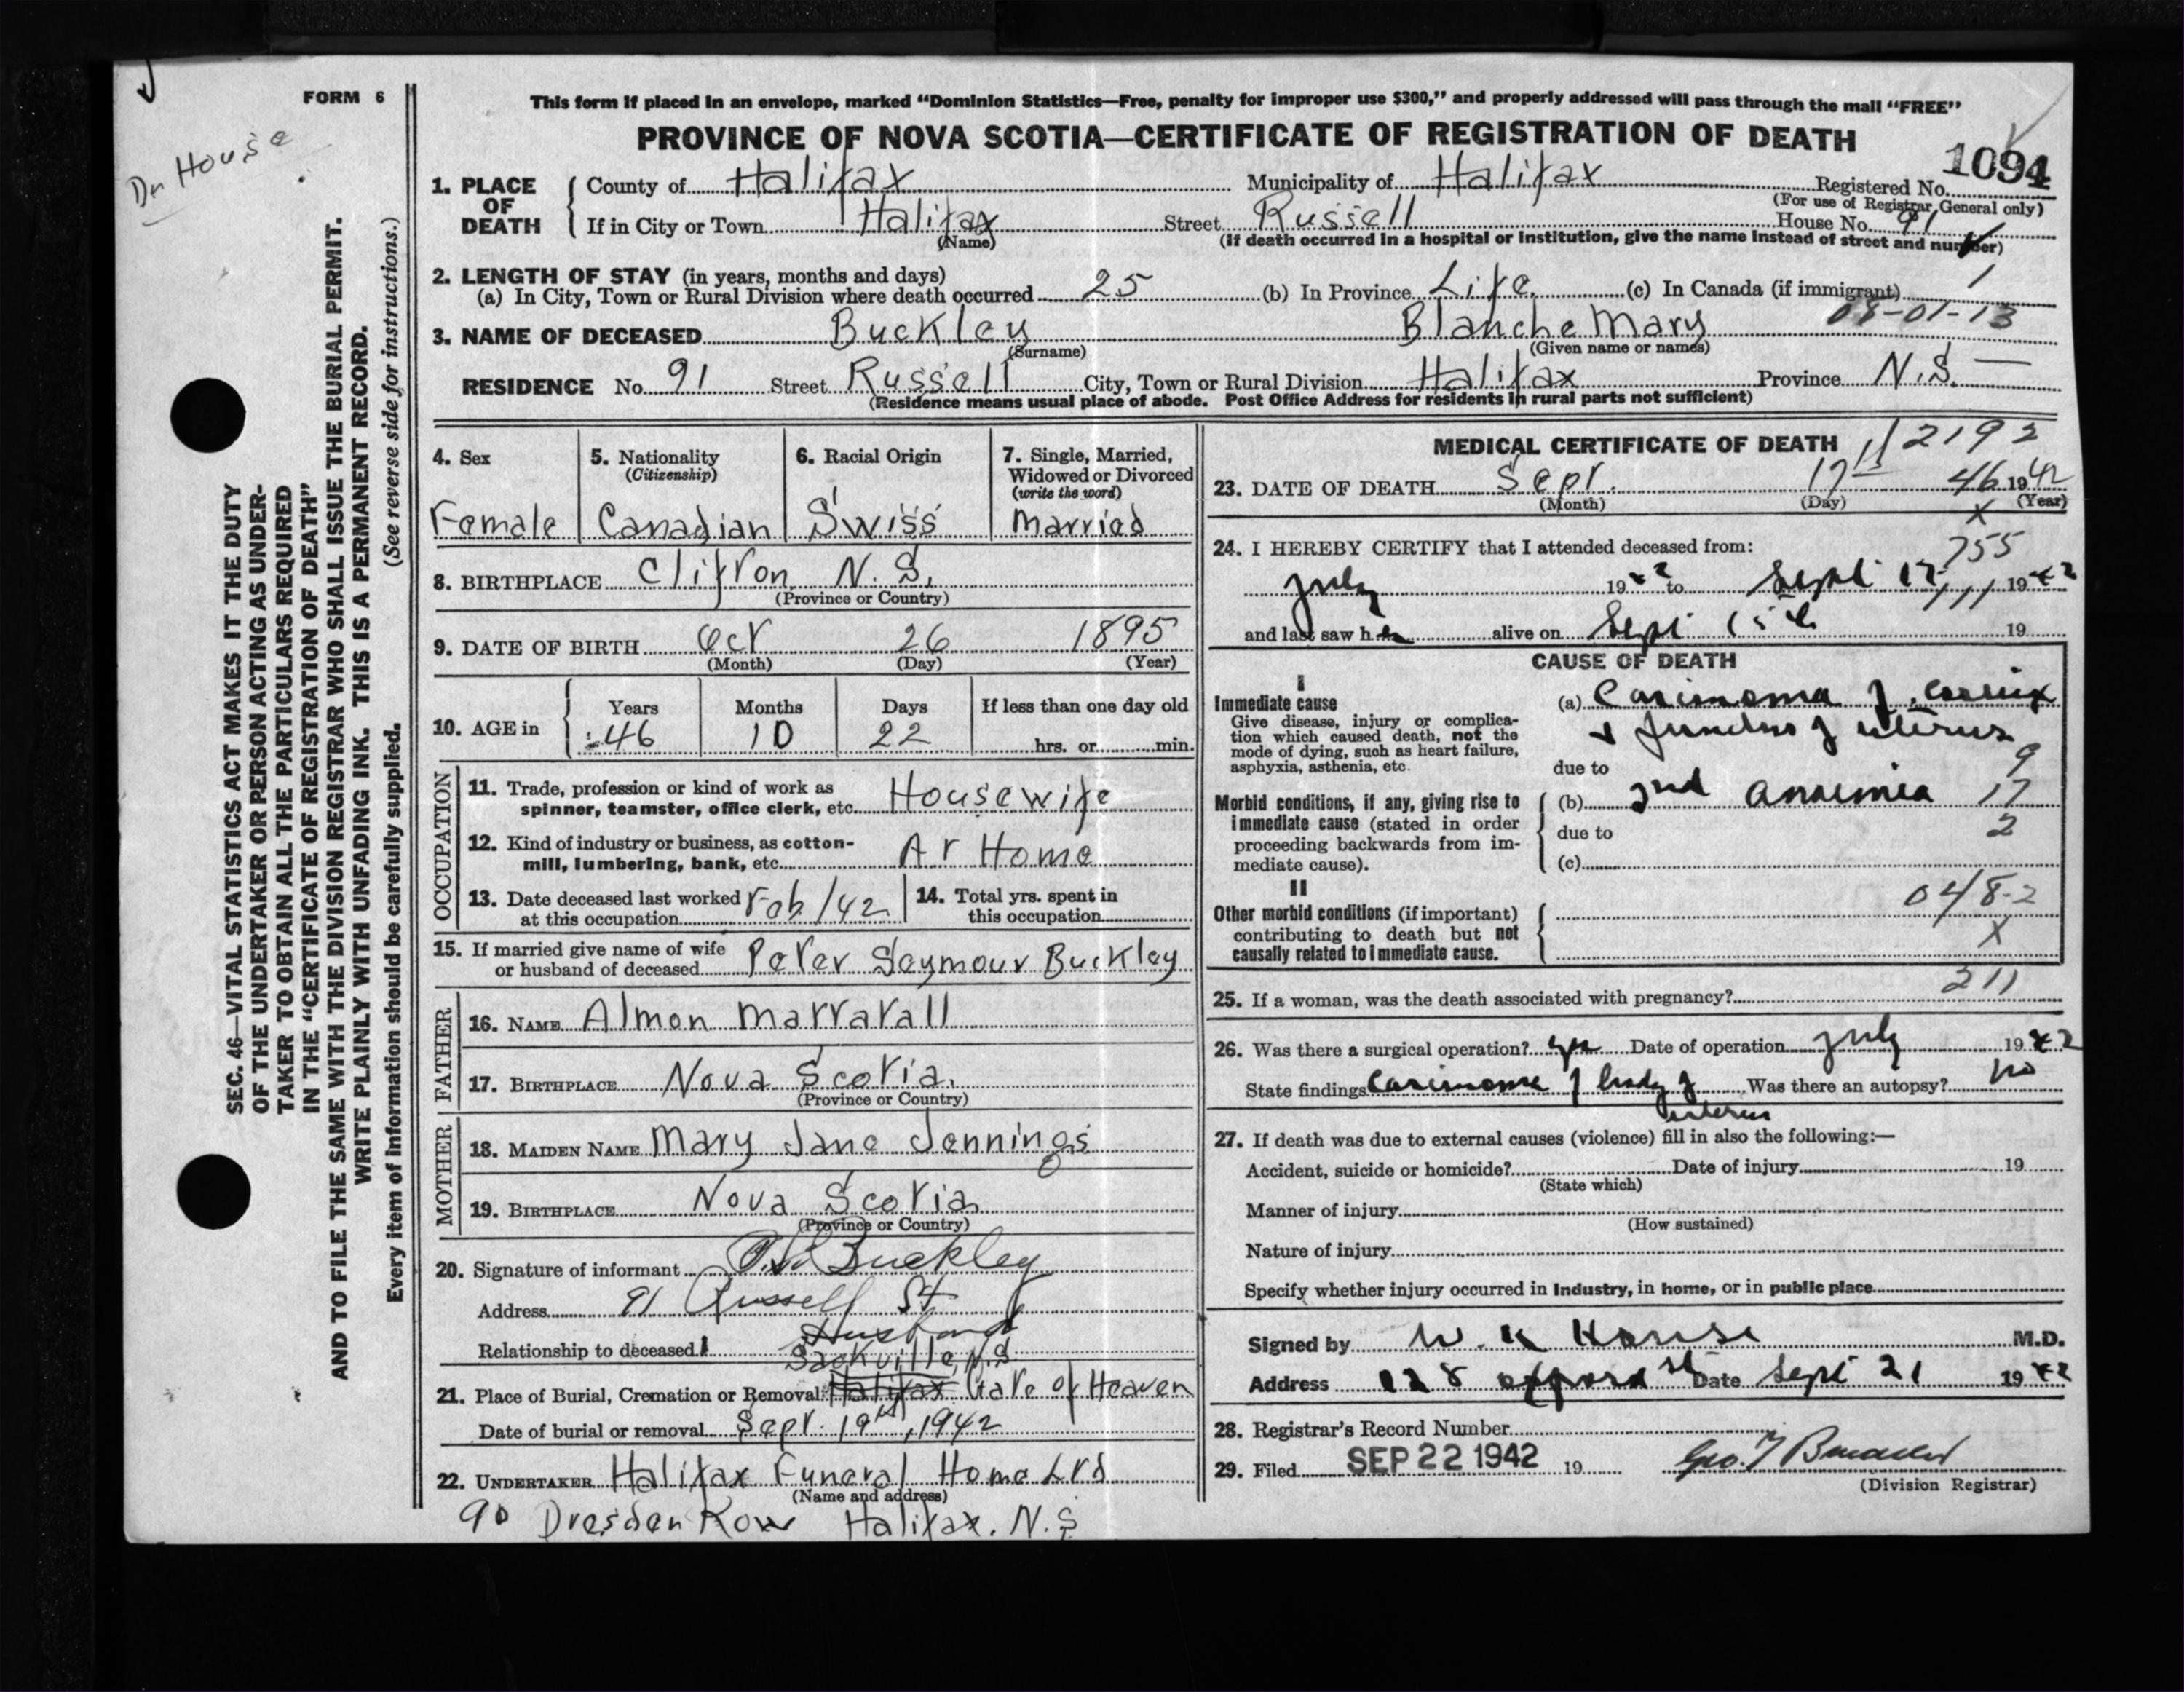 FORM 6
Dr House
This form if placed in an envelope, marked “Dominion Statistics—Free, penalty for improper use $300,” and properly addressed will pass through the mail “FREE”
PROVINCE OF NOVA SCOTIA—CERTIFICATE OF REGISTRATION OF DEATH
1094
1. PLACE OF DEATH County of Halifax Municipality of Halifax Registered No.
(For use of Registrar General only)
If in City or Town Halifax Street Russell House No. 91
(Name) (If death occurred in a hospital or institution, give the name instead of street and number)
2. LENGTH OF STAY (in years, months and days)
(a) In City, Town or Rural Division where death occurred 25 (b) In Province Life (c) In Canada (if immigrant) 1
08-01-13
3. NAME OF DECEASED Buckley Blanche Mary
(Surname) (Given name or names)
RESIDENCE No. 91 Street Russell City, Town or Rural Division Halifax Province N.S. —
(Residence means usual place of abode. Post Office Address for residents in rural parts not sufficient)
4. Sex 5. Nationality 6. Racial Origin 7. Single, Married,
(Citizenship) Widowed or Divorced
(write the word)
Female Canadian Swiss Married
8. BIRTHPLACE Clifton N.S.
(Province or Country)
9. DATE OF BIRTH Oct 26 1895
(Month) (Day) (Year)
10. AGE in Years Months Days If less than one day old
46 10 22 hrs. or min.
OCCUPATION
11. Trade, profession or kind of work as
spinner, teamster, office clerk, etc. Housewife
12. Kind of industry or business, as cotton-
mill, lumbering, bank, etc. At Home
13. Date deceased last worked Feb/42 14. Total yrs. spent in
at this occupation this occupation
15. If married give name of wife Peter Seymour Buckley
or husband of deceased
FATHER
16. NAME Almon Marratall
17. BIRTHPLACE Nova Scotia.
(Province or Country)
MOTHER
18. MAIDEN NAME Mary Jane Jennings
19. BIRTHPLACE Nova Scotia
(Province or Country)
20. Signature of informant P.S. Buckley
Address 91 Russell St
Relationship to deceased Husband
Sackville, N.S
21. Place of Burial, Cremation or Removal Halifax Gate of Heaven
Date of burial or removal Sept. 19th, 1942
22. UNDERTAKER Halifax Funeral Home Ltd
(Name and address)
90 Dresden Row Halifax. N.S
MEDICAL CERTIFICATE OF DEATH
2192
23. DATE OF DEATH Sept. 17 46 1942
(Month) (Day) (Year)
x
24. I HEREBY CERTIFY that I attended deceased from:
755
July 1942 to Sept 17 1942
and last saw her alive on Sept 15th 19
CAUSE OF DEATH
I
Immediate cause
Give disease, injury or complica-
tion which caused death, not the
mode of dying, such as heart failure,
asphyxia, asthenia, etc.
(a) Carcinoma of cervix
& fundus of uterus
9
due to
Morbid conditions, if any, giving rise to
immediate cause (stated in order
proceeding backwards from im-
mediate cause).
(b) 2nd anaemia 17
due to 2
(c)
II
Other morbid conditions (if important)
contributing to death but not
causally related to immediate cause.
048-2
X
211
25. If a woman, was the death associated with pregnancy?
26. Was there a surgical operation? yes Date of operation July 1942
State findings Carcinoma of body of uterus Was there an autopsy? no
27. If death was due to external causes (violence) fill in also the following:—
Accident, suicide or homicide? Date of injury 19
(State which)
Manner of injury
(How sustained)
Nature of injury
Specify whether injury occurred in industry, in home, or in public place
Signed by W K House M.D.
Address 128 Oxford St Date Sept 21 1942
28. Registrar's Record Number
29. Filed SEP 22 1942 19
(Division Registrar)
SEC. 46—VITAL STATISTICS ACT MAKES IT THE DUTY
OF THE UNDERTAKER OR PERSON ACTING AS UNDER-
TAKER TO OBTAIN ALL THE PARTICULARS REQUIRED
IN THE “CERTIFICATE OF REGISTRATION OF DEATH”
AND TO FILE THE SAME WITH THE DIVISION REGISTRAR WHO SHALL ISSUE THE BURIAL PERMIT.
WRITE PLAINLY WITH UNFADING INK. THIS IS A PERMANENT RECORD.
(See reverse side for instructions.)
Every item of information should be carefully supplied.